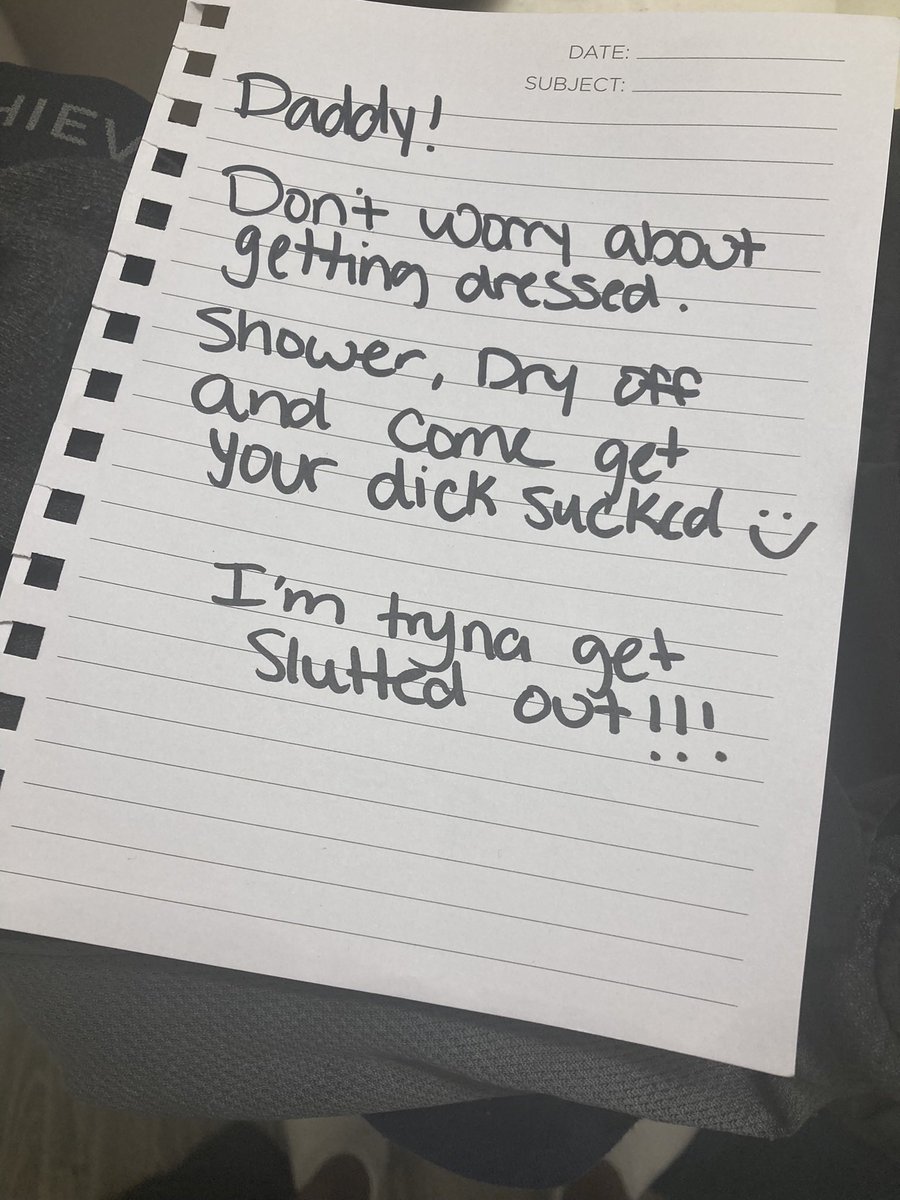 DATE:
SUBJECT:
HIEV
Daddy!
Don't worry about
getting dressed.
Shower, Dry off
and come get
your dick sucked :)
I'm tryna get
Slutted out!!!